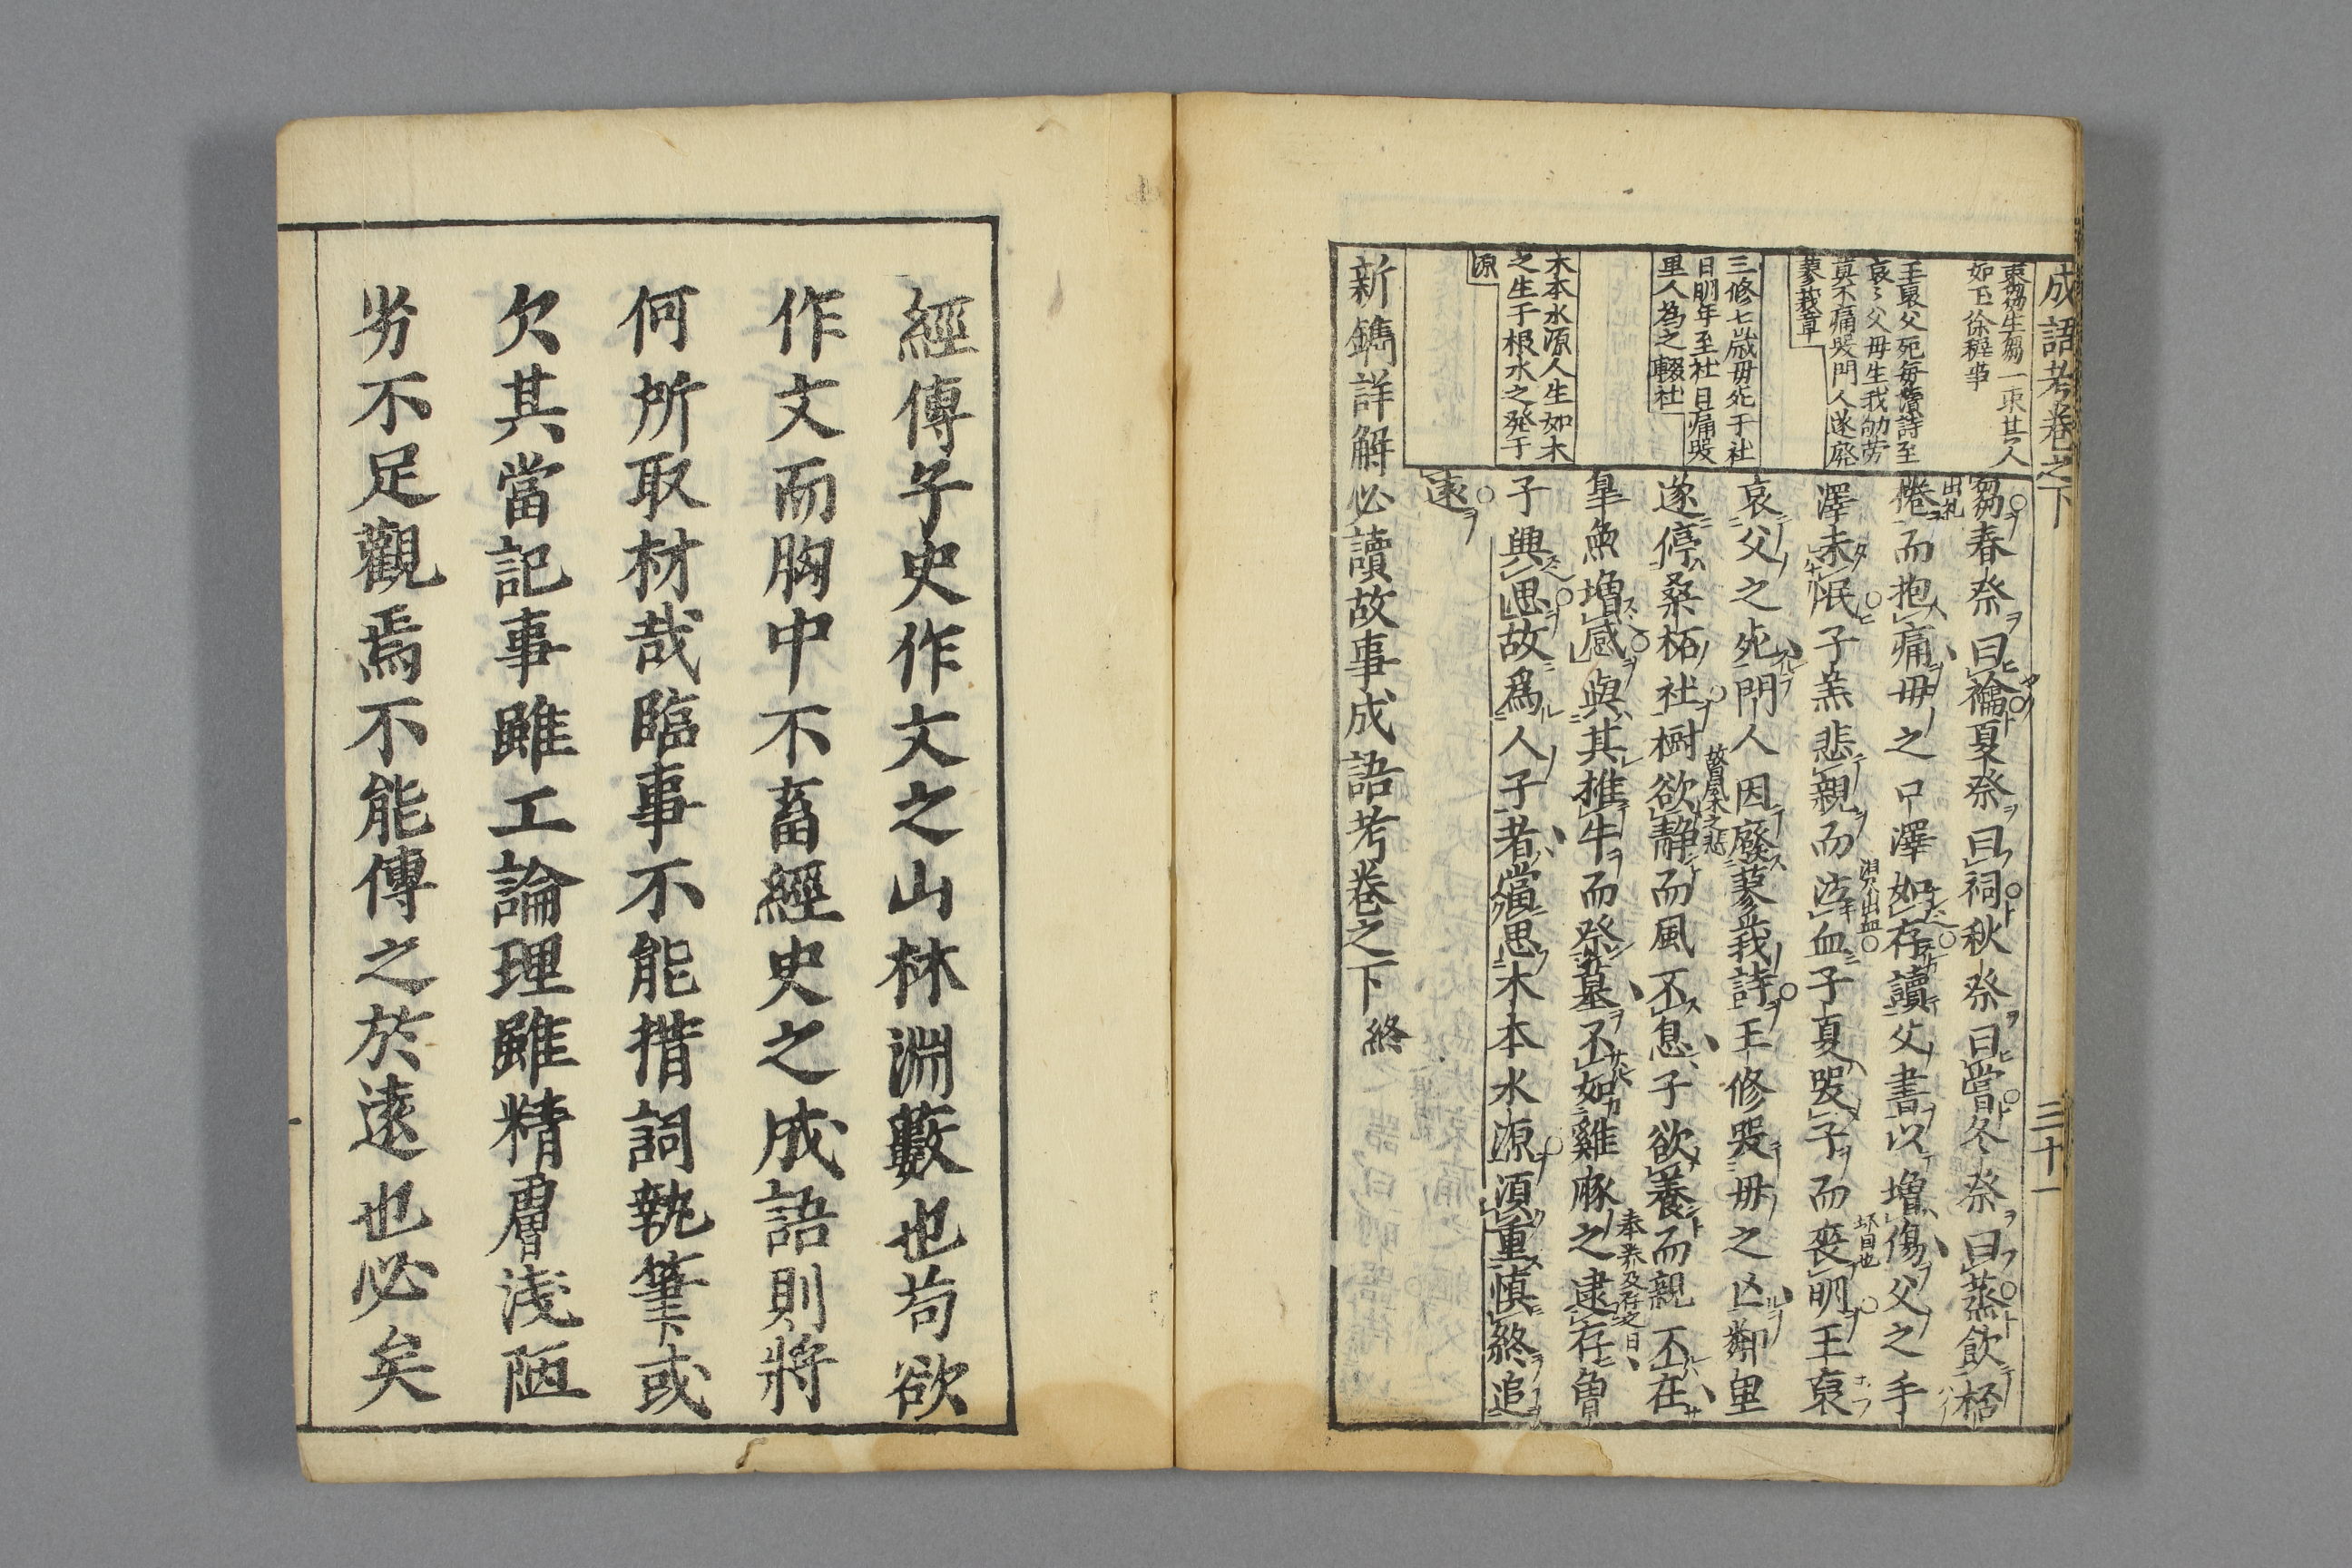 成語考卷之下
三十一
束芻生芻一束其人
如玉徐穉事
王裒父死每讀詩至
哀〻父母生我劬劳
莫不痛哭門人遂廃
蓼莪章
三修七歲毋死于社
日明年至社日痛哭
里人為之輟社
木本水源人生如木
之生于根水之発于
源
芻春祭曰禴夏祭曰祠秋祭曰嘗冬祭曰蒸飲桮
棬而抱痛毋之口澤如存讀父書以增傷父之手
澤未泯子羔悲親而泣血子夏哭子而喪明王裒
哀父之死門人因廢蓼莪詩王修哭毋之亾鄰里
遂停桑柘社樹欲静而風不息子欲養而親不在
皐魚増感與其推牛而祭墓不如雞豚之逮存曾
子興思故爲人子者當思木本水源須重慎終追
遠
新鐫詳解必讀故事成語考卷之下終
經傳子史作文之山林淵藪也苟欲
作文而胸中不畜經史之成語則將
何所取材哉臨事不能措詞執筆或
欠其當記事雖工論理雖精膚淺陋
劣不足觀焉不能傳之於遠也必矣